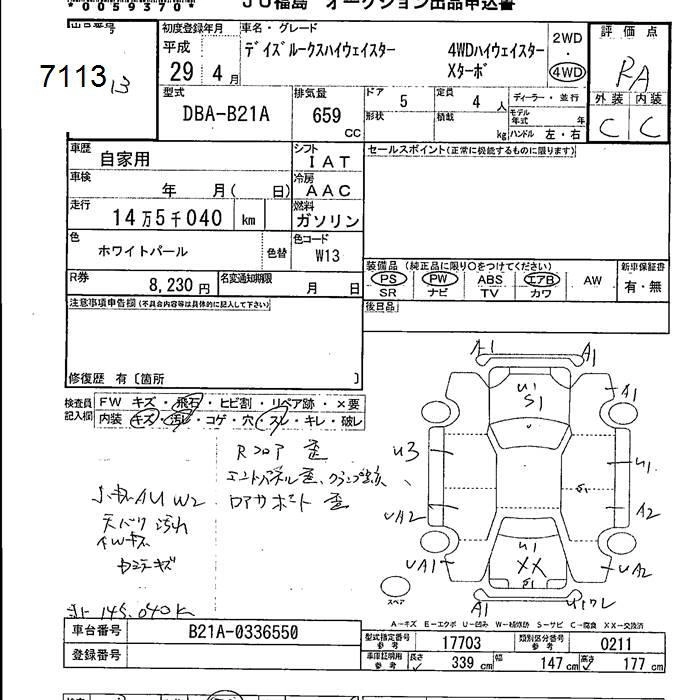 *0059370*
JU福島 オークション出品申込書
出品番号
7113
13
初度登録年月
平成
29 4月
車名・グレード
デイズルークスハイウェイスター 4WDハイウェイスター
Xターボ
2WD
・
4WD
評価点
RA
外装 内装
C C
型式
DBA-B21A
排気量
659
CC
ドア 5
定員 4人
ディーラー・並行
形状
積載 kg
モデル年式 年
ハンドル 左・右
車歴
自家用
シフト
IAT
車検
年 月( 日)
冷房
AAC
走行
14万5千040 km
燃料
ガソリン
色
ホワイトパール
色替
色コード
W13
R券 8,230円
名変通知期限 月 日
セールスポイント(正常に機能するものに限ります)
装備品(純正品に限り○をつけてください)
PS PW ABS エアB AW
SR ナビ TV カワ
新車保証書
有・無
後日品
注意事項申告欄(不具合内容等は具体的に記入して下さい)
修復歴 有〔箇所 〕
検査員記入欄
FW キズ・飛石・ヒビ割・リペア跡・×要
内装 キズ・汚レ・コゲ・穴・スレ・キレ・破レ
Rフロア 歪
エンドパネル歪、クランプ跡
ロアサポート 歪
W2
天バリ汚れ
キズ
145,040K
A1 A1
U1
S1
A1
U3
U1
UA2
A2
UA1
U1
XX
S1
UA2
A1
スペア
A-キズ E-エクボ U-凹み W-補修跡 S-サビ C-腐食 XX-交換済
車台番号 B21A-0336550
登録番号
型式指定番号 参考 17703
類別区分番号 参考 0211
車庫証明用 参考 長さ 339cm 幅 147cm 高さ 177cm